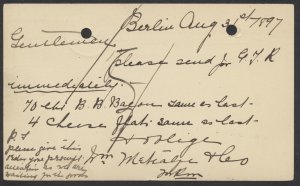 Berlin Aug 31st 1897
Gentlemen
Please send for G.T.R
immediately.
70 lbs B.B Bacon same as last-
4 Cheese flats same as last-
& oblige
Wm Metcalfe & Co
P.S
please give this
order your prompt
attention as we are
waiting for the goods